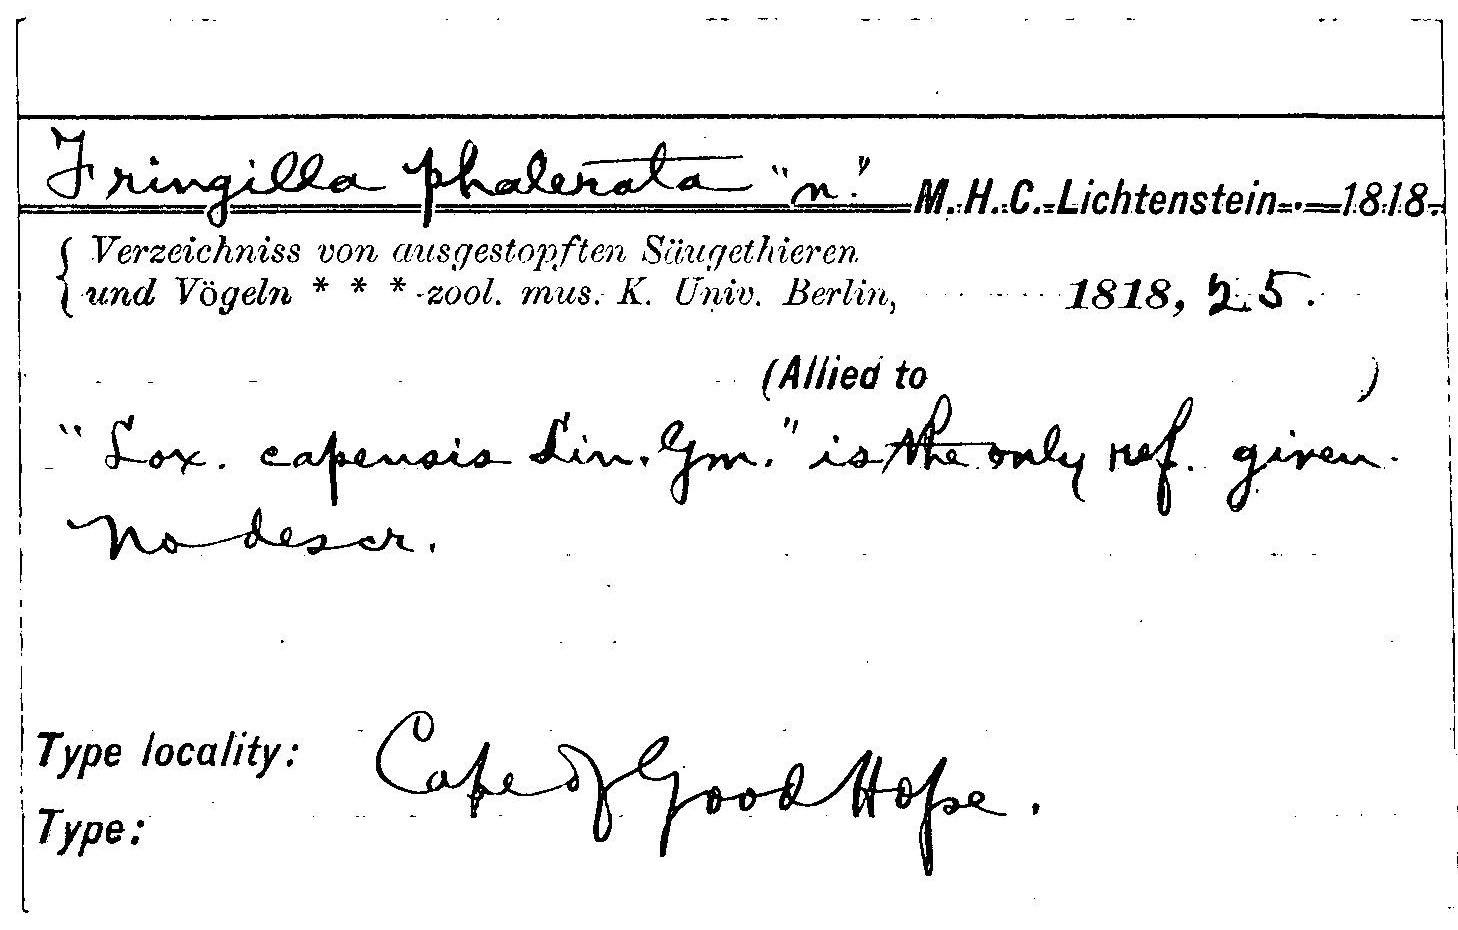 Fringilla phalerata "n." M. H. C. Lichtenstein 1818
{ Verzeichniss von ausgestopften Säugethieren
und Vögeln * * * zool. mus. K. Univ. Berlin, 1818, 25.
(Allied to )
"Lox. capensis Lin. Gm." is the only ref. given.
No descr.
Type locality: Cape of Good Hope.
Type: